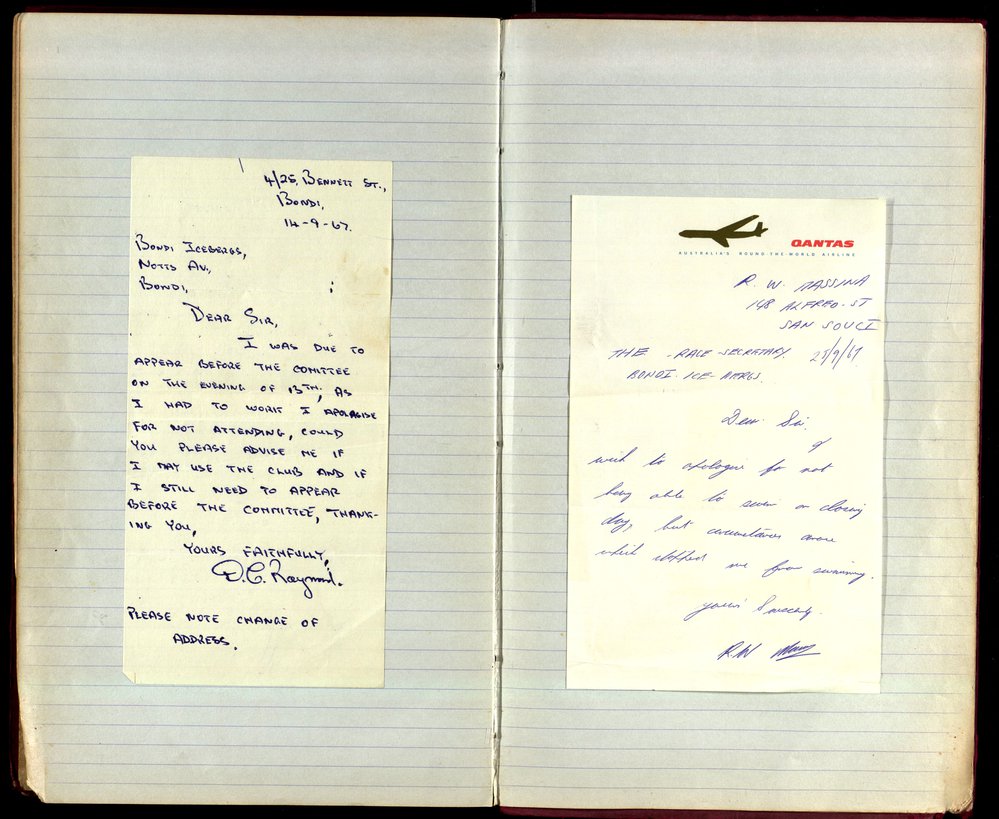 4/25, BENNETT ST.,
BONDI,
14-9-67.
BONDI ICEBERGS,
NOTTS AV,
BONDI,
DEAR SIR,
I WAS DUE TO
APPEAR BEFORE THE COMITTEE
ON THE EVENING OF 13TH, AS
I HAD TO WORK I APOLAGISE
FOR NOT ATTENDING, COULD
YOU PLEASE ADVISE ME IF
I MAY USE THE CLUB AND IF
I STILL NEED TO APPEAR
BEFORE THE COMMITTEE, THANK-
ING YOU,
YOURS FAITHFULLY,
D.C. Raymond.
PLEASE NOTE CHANGE OF
ADDRESS.
QANTAS
AUSTRALIA'S ROUND-THE-WORLD AIRLINE
R. W. MASSINA
148 ALFRED-ST
SAN SOUCI
THE RACE-SECRETARY. /9/67
BONDI ICE-BERGS.
Dear Sir,
I
wish to apologise for not
being able to swim on closing
day, but circumstances arose
which stopped me from swimming.
yours Sincerely.
R.W